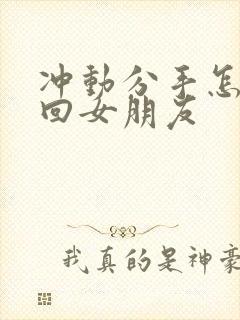 冲動分手怎
回女朋友
我真的是神豪